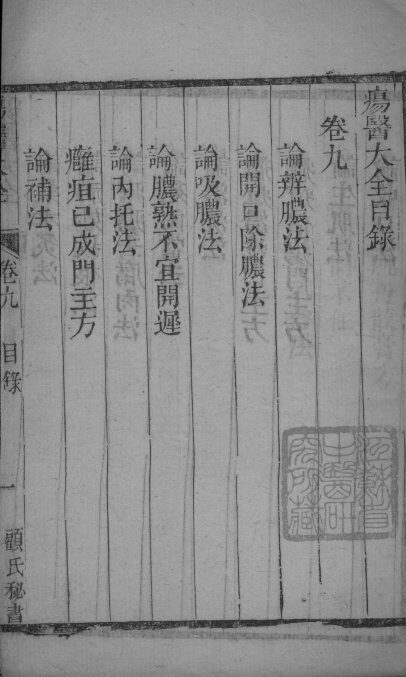 瘍醫大全目錄
卷九
論辨膿法
論開口除膿法
論吸膿法
論膿熟不宜開遲
論內托法
癰疽已成門主方
論補法
瘍醫大全
卷九
目錄
一
顧氏秘書
江蘇省
中醫研
究所藏